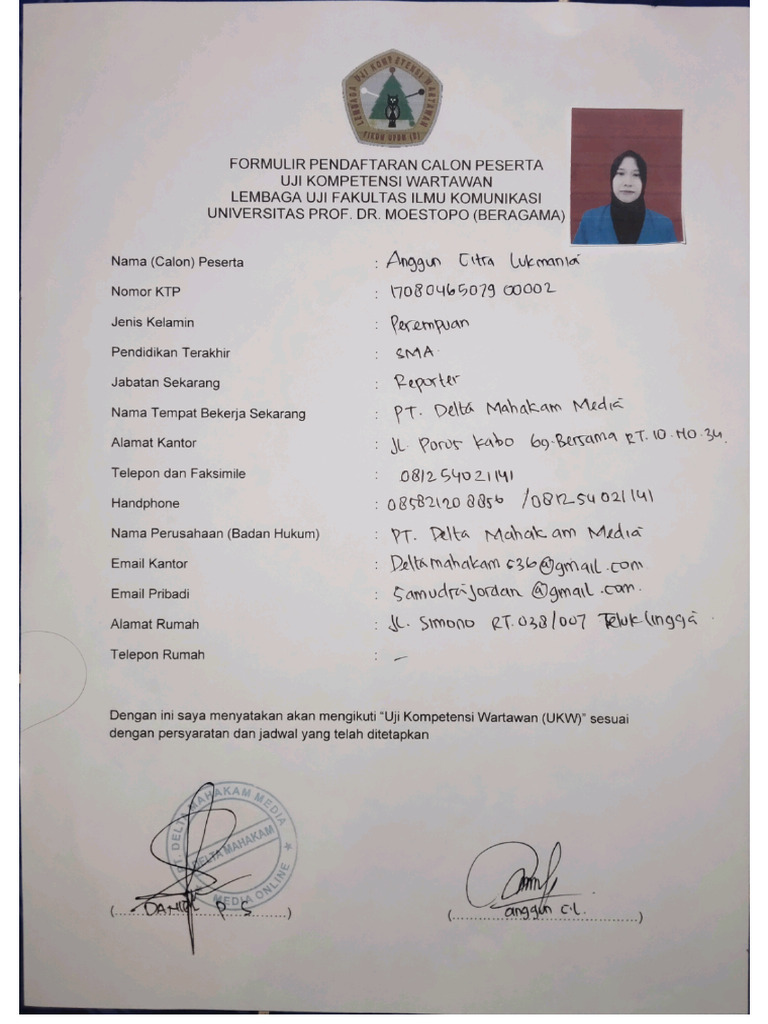 LEMBAGA UJI KOMPETENSI WARTAWAN
FIKOM UPDM (B)
FORMULIR PENDAFTARAN CALON PESERTA
UJI KOMPETENSI WARTAWAN
LEMBAGA UJI FAKULTAS ILMU KOMUNIKASI
UNIVERSITAS PROF. DR. MOESTOPO (BERAGAMA)
Nama (Calon) Peserta : Anggun Citra Lukmania
Nomor KTP : 1708046507900002
Jenis Kelamin : Perempuan
Pendidikan Terakhir : SMA
Jabatan Sekarang : Reporter
Nama Tempat Bekerja Sekarang : PT. Delta Mahakam Media
Alamat Kantor : JL. Porus Kabo Gg. Bersama RT. 10. NO. 34.
Telepon dan Faksimile : 081254021141
Handphone : 085821208856 / 081254021141
Nama Perusahaan (Badan Hukum) : PT. Delta Mahakam Media
Email Kantor : Deltamahakam636@gmail.com
Email Pribadi : Samudrajordan@gmail.com.
Alamat Rumah : JL. Simono RT. 038/007 Teluk lingga
Telepon Rumah : –
Dengan ini saya menyatakan akan mengikuti “Uji Kompetensi Wartawan (UKW)” sesuai
dengan persyaratan dan jadwal yang telah ditetapkan
PT. DELTA MAHAKAM MEDIA
DELTA MAHAKAM
MEDIA ONLINE
(........ P. S ........)
(........ anggun C.L. ........)